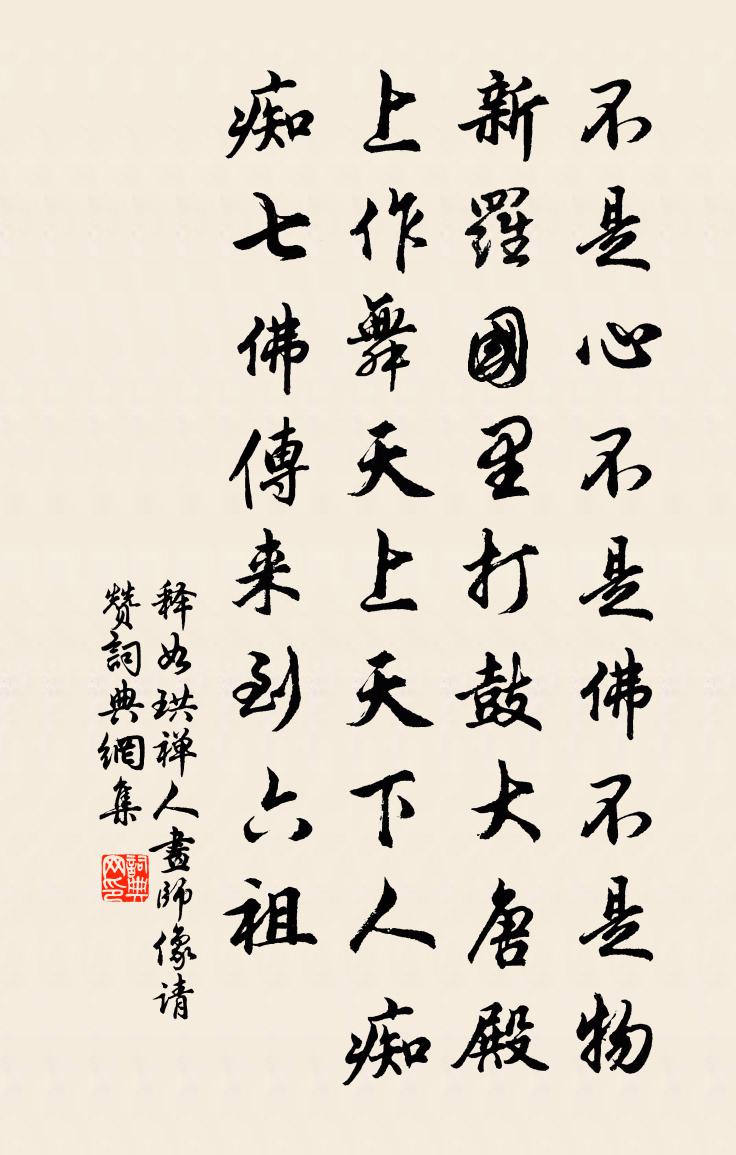 不是心不是佛不是物
新羅國里打鼓大唐殿
上作舞天上天下人痴
痴七佛傳来到六祖
释如珙禅人畫師像请
赞詞典網集
詞典网印